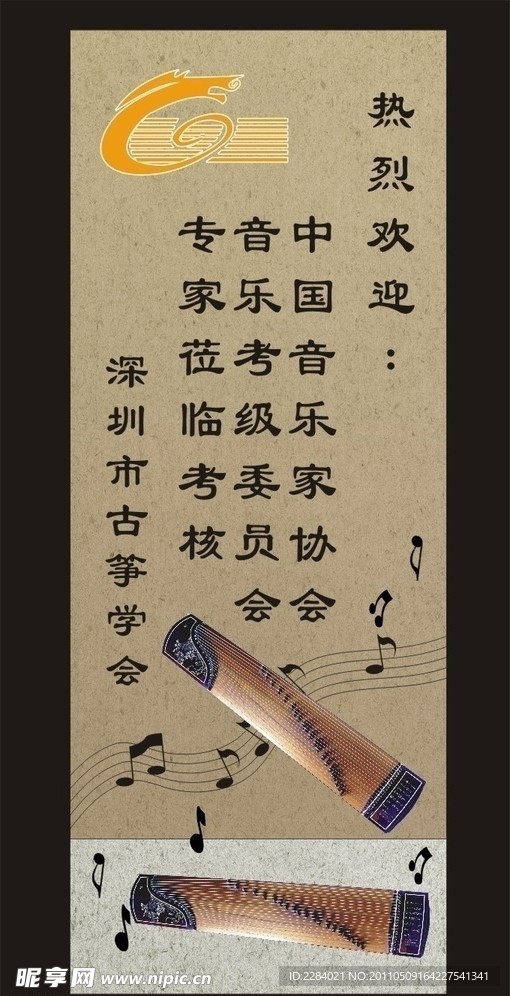 热烈欢迎：
中国音乐家协会
音乐考级委员会
专家莅临考核
深圳市古筝学会
昵享网 www.nipic.cn
ID:2284021 NO:20110509164227541341